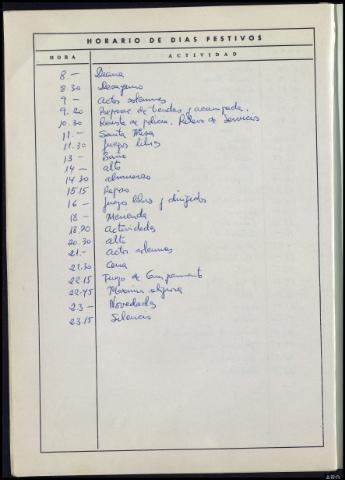 HORARIO DE DIAS FESTIVOS
HORA ACTIVIDAD
8.— Diana
8.30 Desayuno
9.— Actos solemnes
9.20 Preparar de tiendas y acampada.
10.30 Revista de policia. Relevo de Servicios
11.— Santa Misa
11.30 Juegos libres
13— Baño
14— alto
14.30 almuerzo
15.15 Reposo
16— Juegos libres y dirigidos
18— Merienda
18.30 Actividades
20.30 alto
21.— Actos solemnes
21.30 Cena
22.15 Fuego de Campamento
22.45
23— Novedades
23.15 Silencio